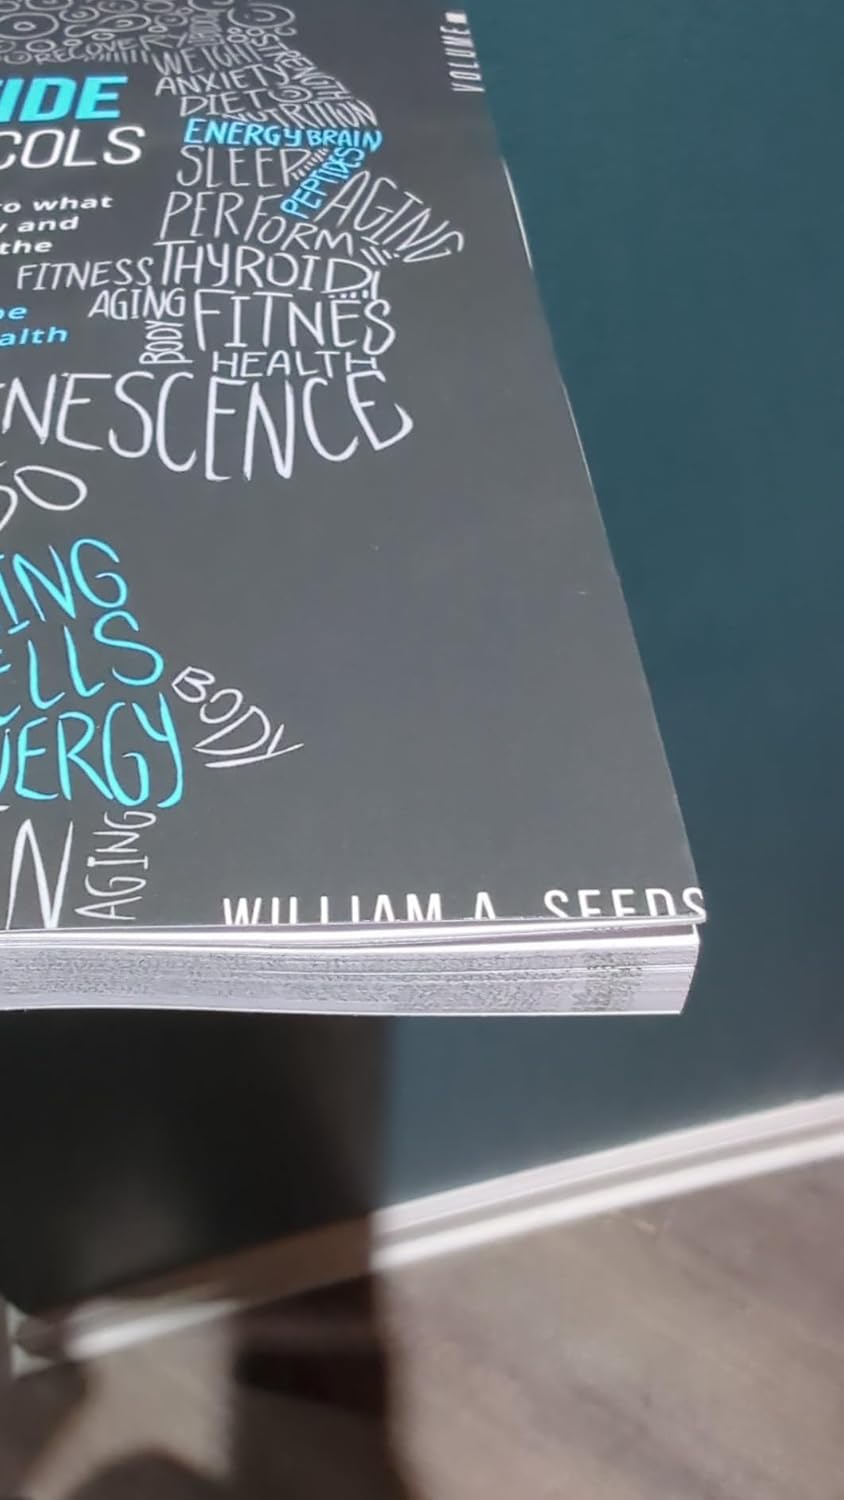 RECOVERY
WEIGHT
STRENGTH
ANXIETY
DIET
NUTRITION
VOLUME
IDE
COLS
ENERGY BRAIN
SLEEP
PEPTIDES
AGING
o what
and
the
PERFORM
FITNESS THYROID
AGING
FITNES
BODY
HEALTH
alth
NESCENCE
SO
ING
ELLS
BODY
NERGY
N
AGING
WILLIAM A. SEEDS